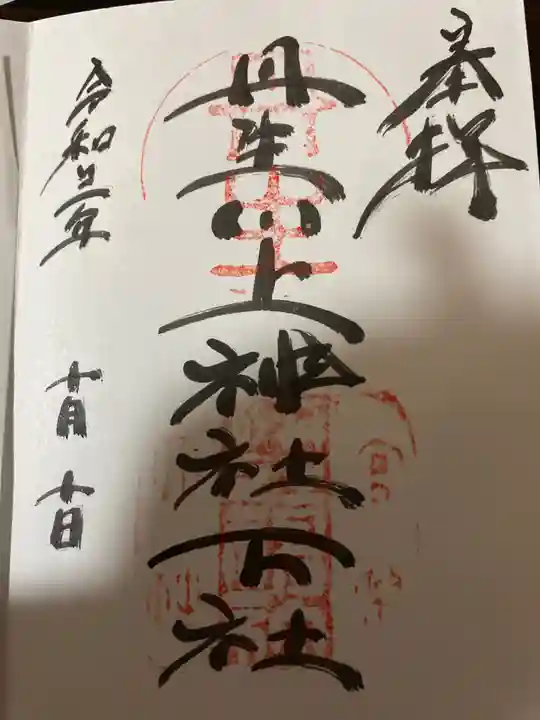 奉拝
丹生川上神社下社
令和三年
十月十日